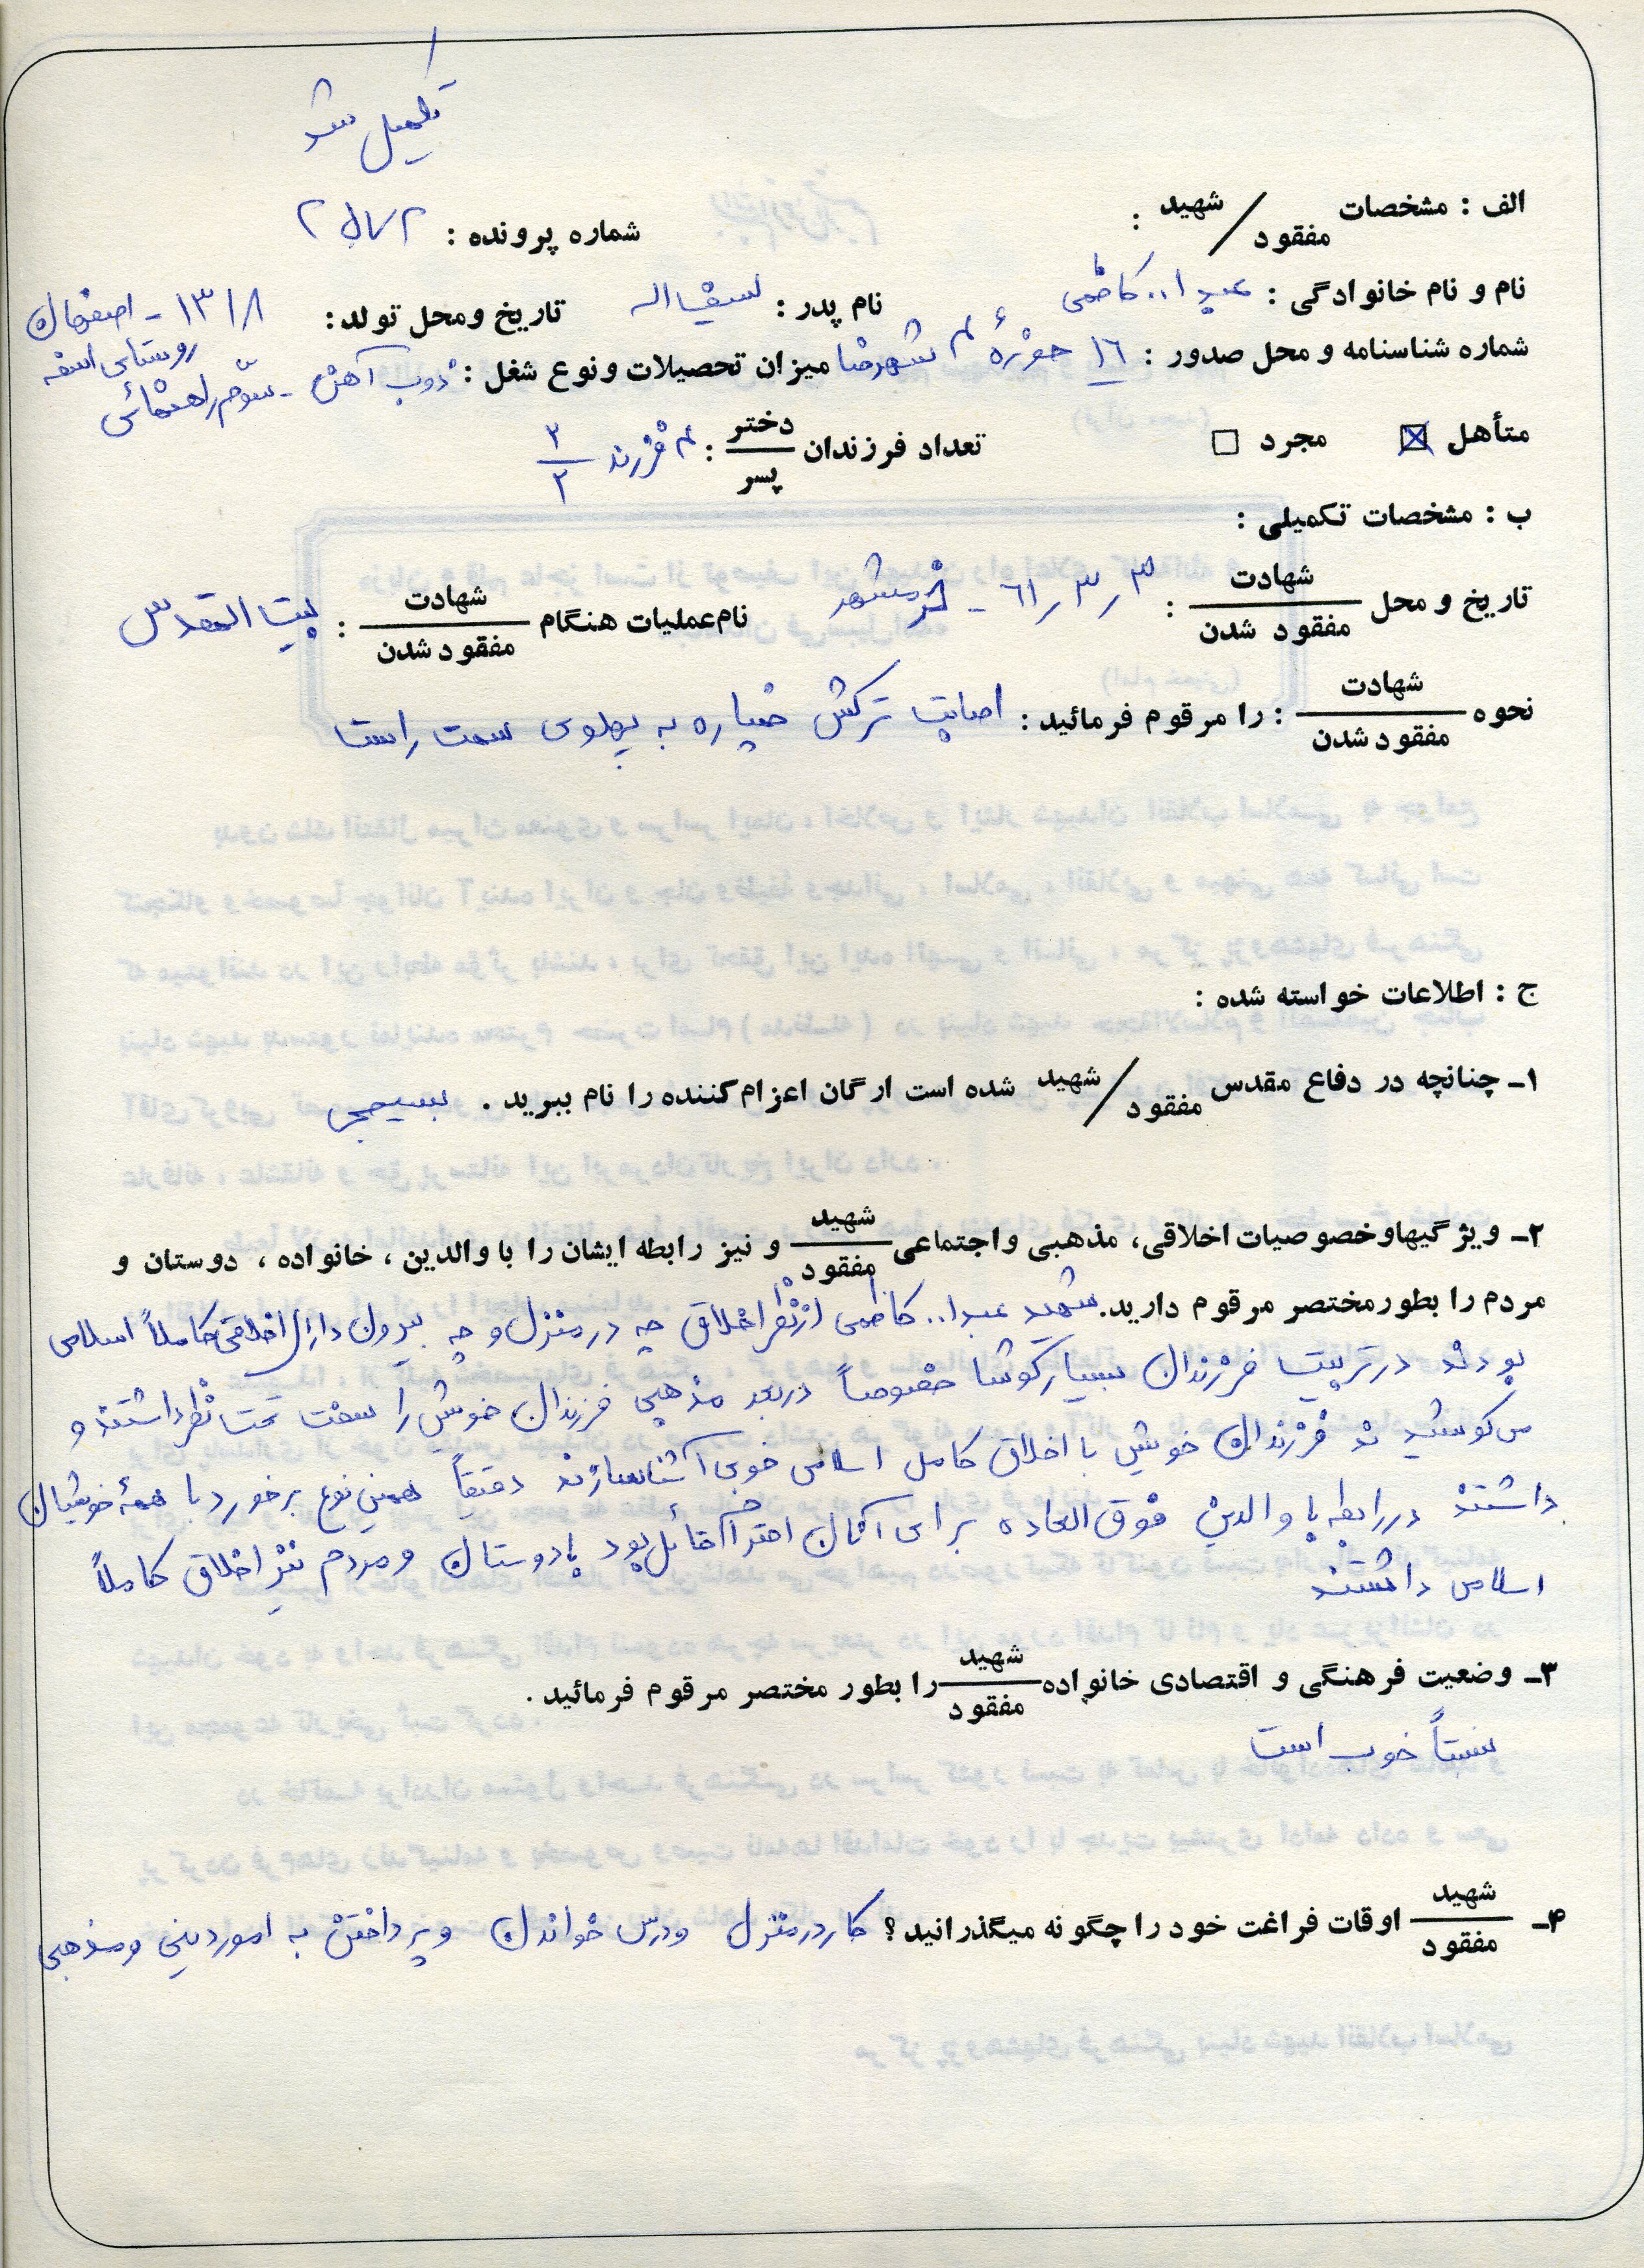 تکمیل شد
الف : مشخصات شهید / مفقود :
شماره پرونده :
نام و نام خانوادگی : عبدا.. کاظمی نام پدر : سیف اله تاریخ ومحل تولد : - اصفهان
روستای اسفه
شماره شناسنامه و محل صدور : ١٦ حوزهٔ ۴ شهرضا میزان تحصیلات ونوع شغل : ذوب آهن - سوّم راهنمائی
متأهل ☒ مجرد ☐ تعداد فرزندان دختر / پسر : ۴ فرزند ٢ / ٢
ب : مشخصات تکمیلی :
تاریخ و محل شهادت / مفقود شدن : ٣ر٣ر٦١ - خرمشهر نام عملیات هنگام شهادت / مفقود شدن : بیت المقدس
نحوه شهادت / مفقود شدن : را مرقوم فرمائید : اصابت ترکش خمپاره به پهلوی سمت راست
ج : اطلاعات خواسته شده :
١- چنانچه در دفاع مقدس شهید / مفقود شده است ارگان اعزام کننده را نام ببرید . بسیجی
٢- ویژگیها وخصوصیات اخلاقی، مذهبی واجتماعی شهید / مفقود و نیز رابطه ایشان را با والدین ، خانواده ، دوستان و
مردم را بطور مختصر مرقوم دارید. شهید عبدا.. کاظمی از نظر اخلاق چه در منزل و چه بیرون دارای اخلاقی کاملاً اسلامی
بودند در تربیت فرزندان بسیار کوشا خصوصاً در بعد مذهبی فرزندان خویش را سخت تحت نظر داشتند و
می کوشیدند فرزندان خویش با اخلاق کامل اسلامی خوبی آشنا سازند دقیقاً همین نوع برخورد با همهٔ خویشان
داشتند در رابطه با والدین فوق العاده برای آنان احترام قائل بود با دوستان و مردم نیز اخلاق کاملاً
اسلامی داشتند
٣- وضعیت فرهنگی و اقتصادی خانواده شهید / مفقود را بطور مختصر مرقوم فرمائید .
نسبتاً خوب است
۴- شهید / مفقود اوقات فراغت خود را چگونه میگذرانید ؟ کار در منزل ودرس خواندن و پرداختن به امور دینی ومذهبی